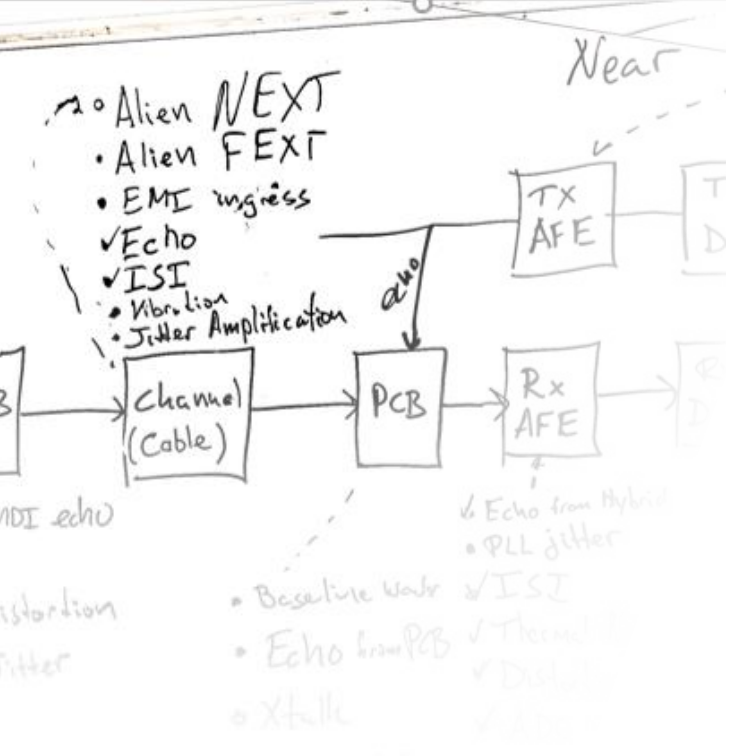 Near
Alien NEXT
• Alien FEXT
• EMI ingress
✓Echo
✓ISI
• Vibration
• Jitter Amplification
TX
AFE
T
D
echo
Channel
(Cable)
PCB
Rx
AFE
R
D
MDI echo
istortion
itter
• Baseline
• Echo from PCB
• Xtalk
✓ Echo from Hybrid
• PLL jitter
✓ISI
✓
✓